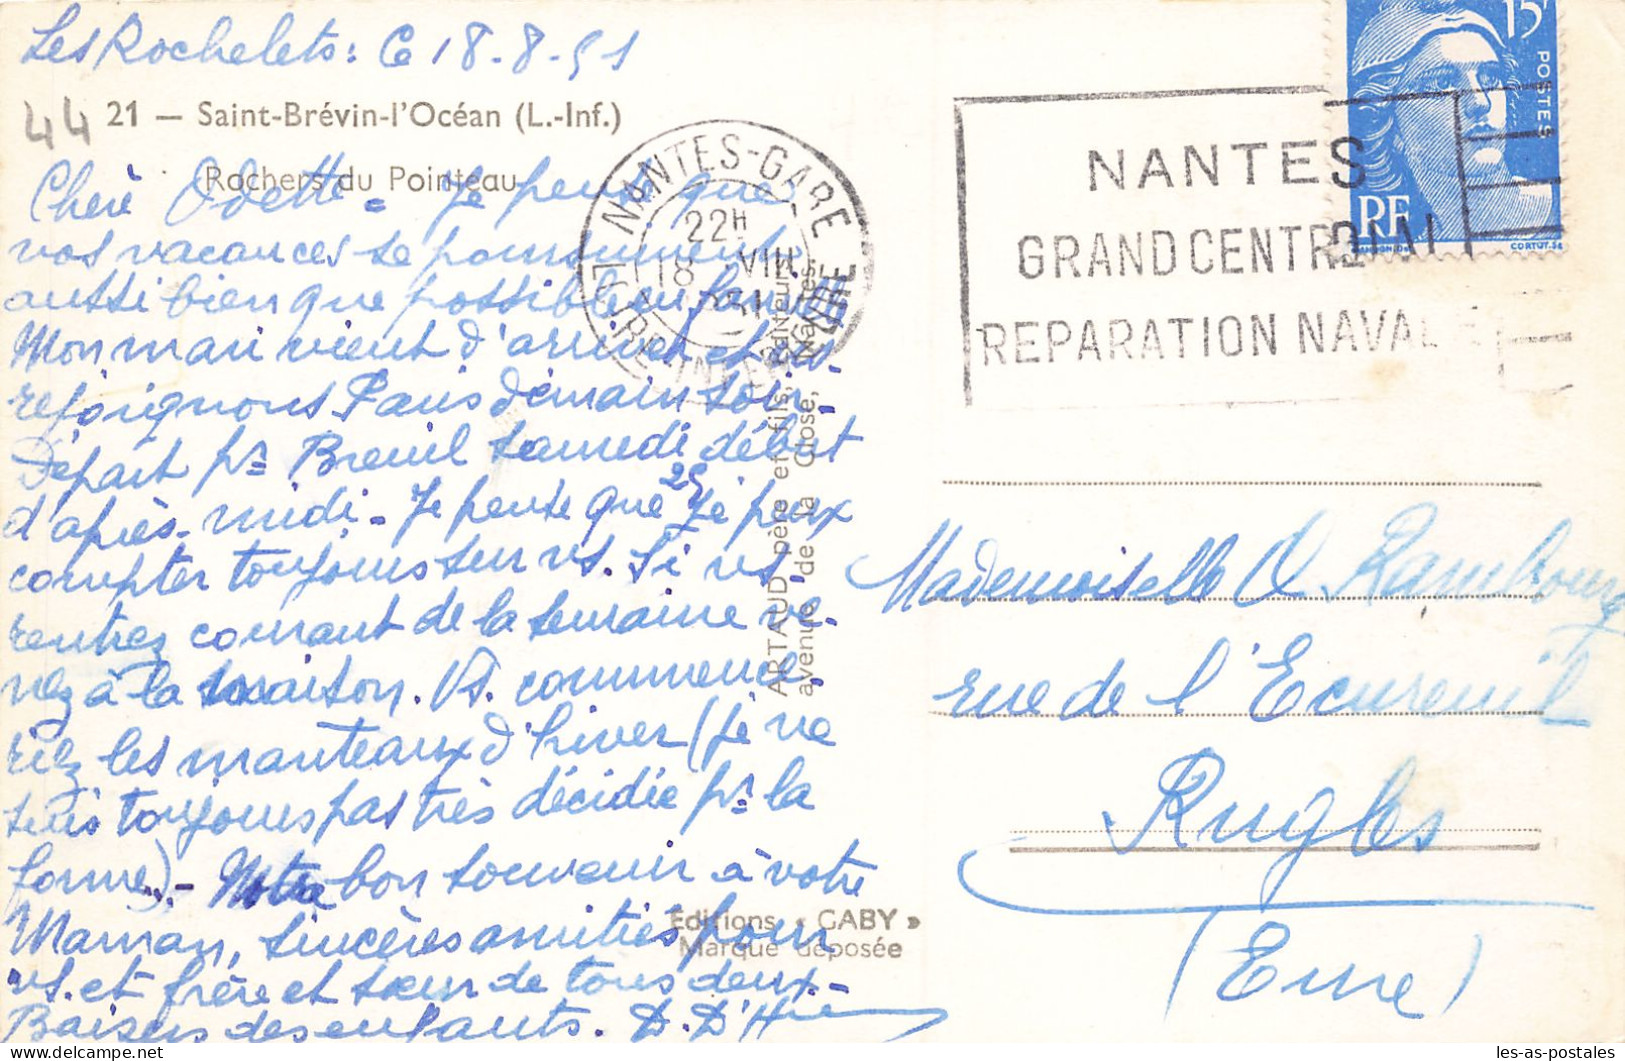 Les Rochelets : Ce 18-8-51
44
21 — Saint-Brévin-l'Océan (L.-Inf.)
Rochers du Pointeau
Chère Odette = Je pense que
vos vacances se poursuivent
aussi bien que possible en famille
Mon mari vient d'arriver et ns
rejoignons Paris demain soir.
Départ pr Breuil samedi début
d'après-midi - Je pense que 25 je peux
compter toujours sur vs. Si vs
rentrez courant de la semaine ve-
nez à la maison. Vs. commence-
riez les manteaux d'hiver (je ne
suis toujours pas très décidée pr la
forme).- Notre bon souvenir à votre
Maman, sincères amitiés pour
vs. et frère et sœur de tous deux -
Baisers des enfants. D. D'H
ARTAUD père et fils, Editeurs
avenue de la Close, Nantes.
Editions « GABY »
Marque déposée
NANTES-GARE
22H
18 VIII
1951
LOIRE INFERIEURE
NANTES
GRAND CENTRE DE
REPARATION NAVALE
15F
POSTES
RF
CORTOT-SC
Mademoiselle O Rambourg
rue de l'Ecureuil
Rugles
(Eure)
les-as-postales